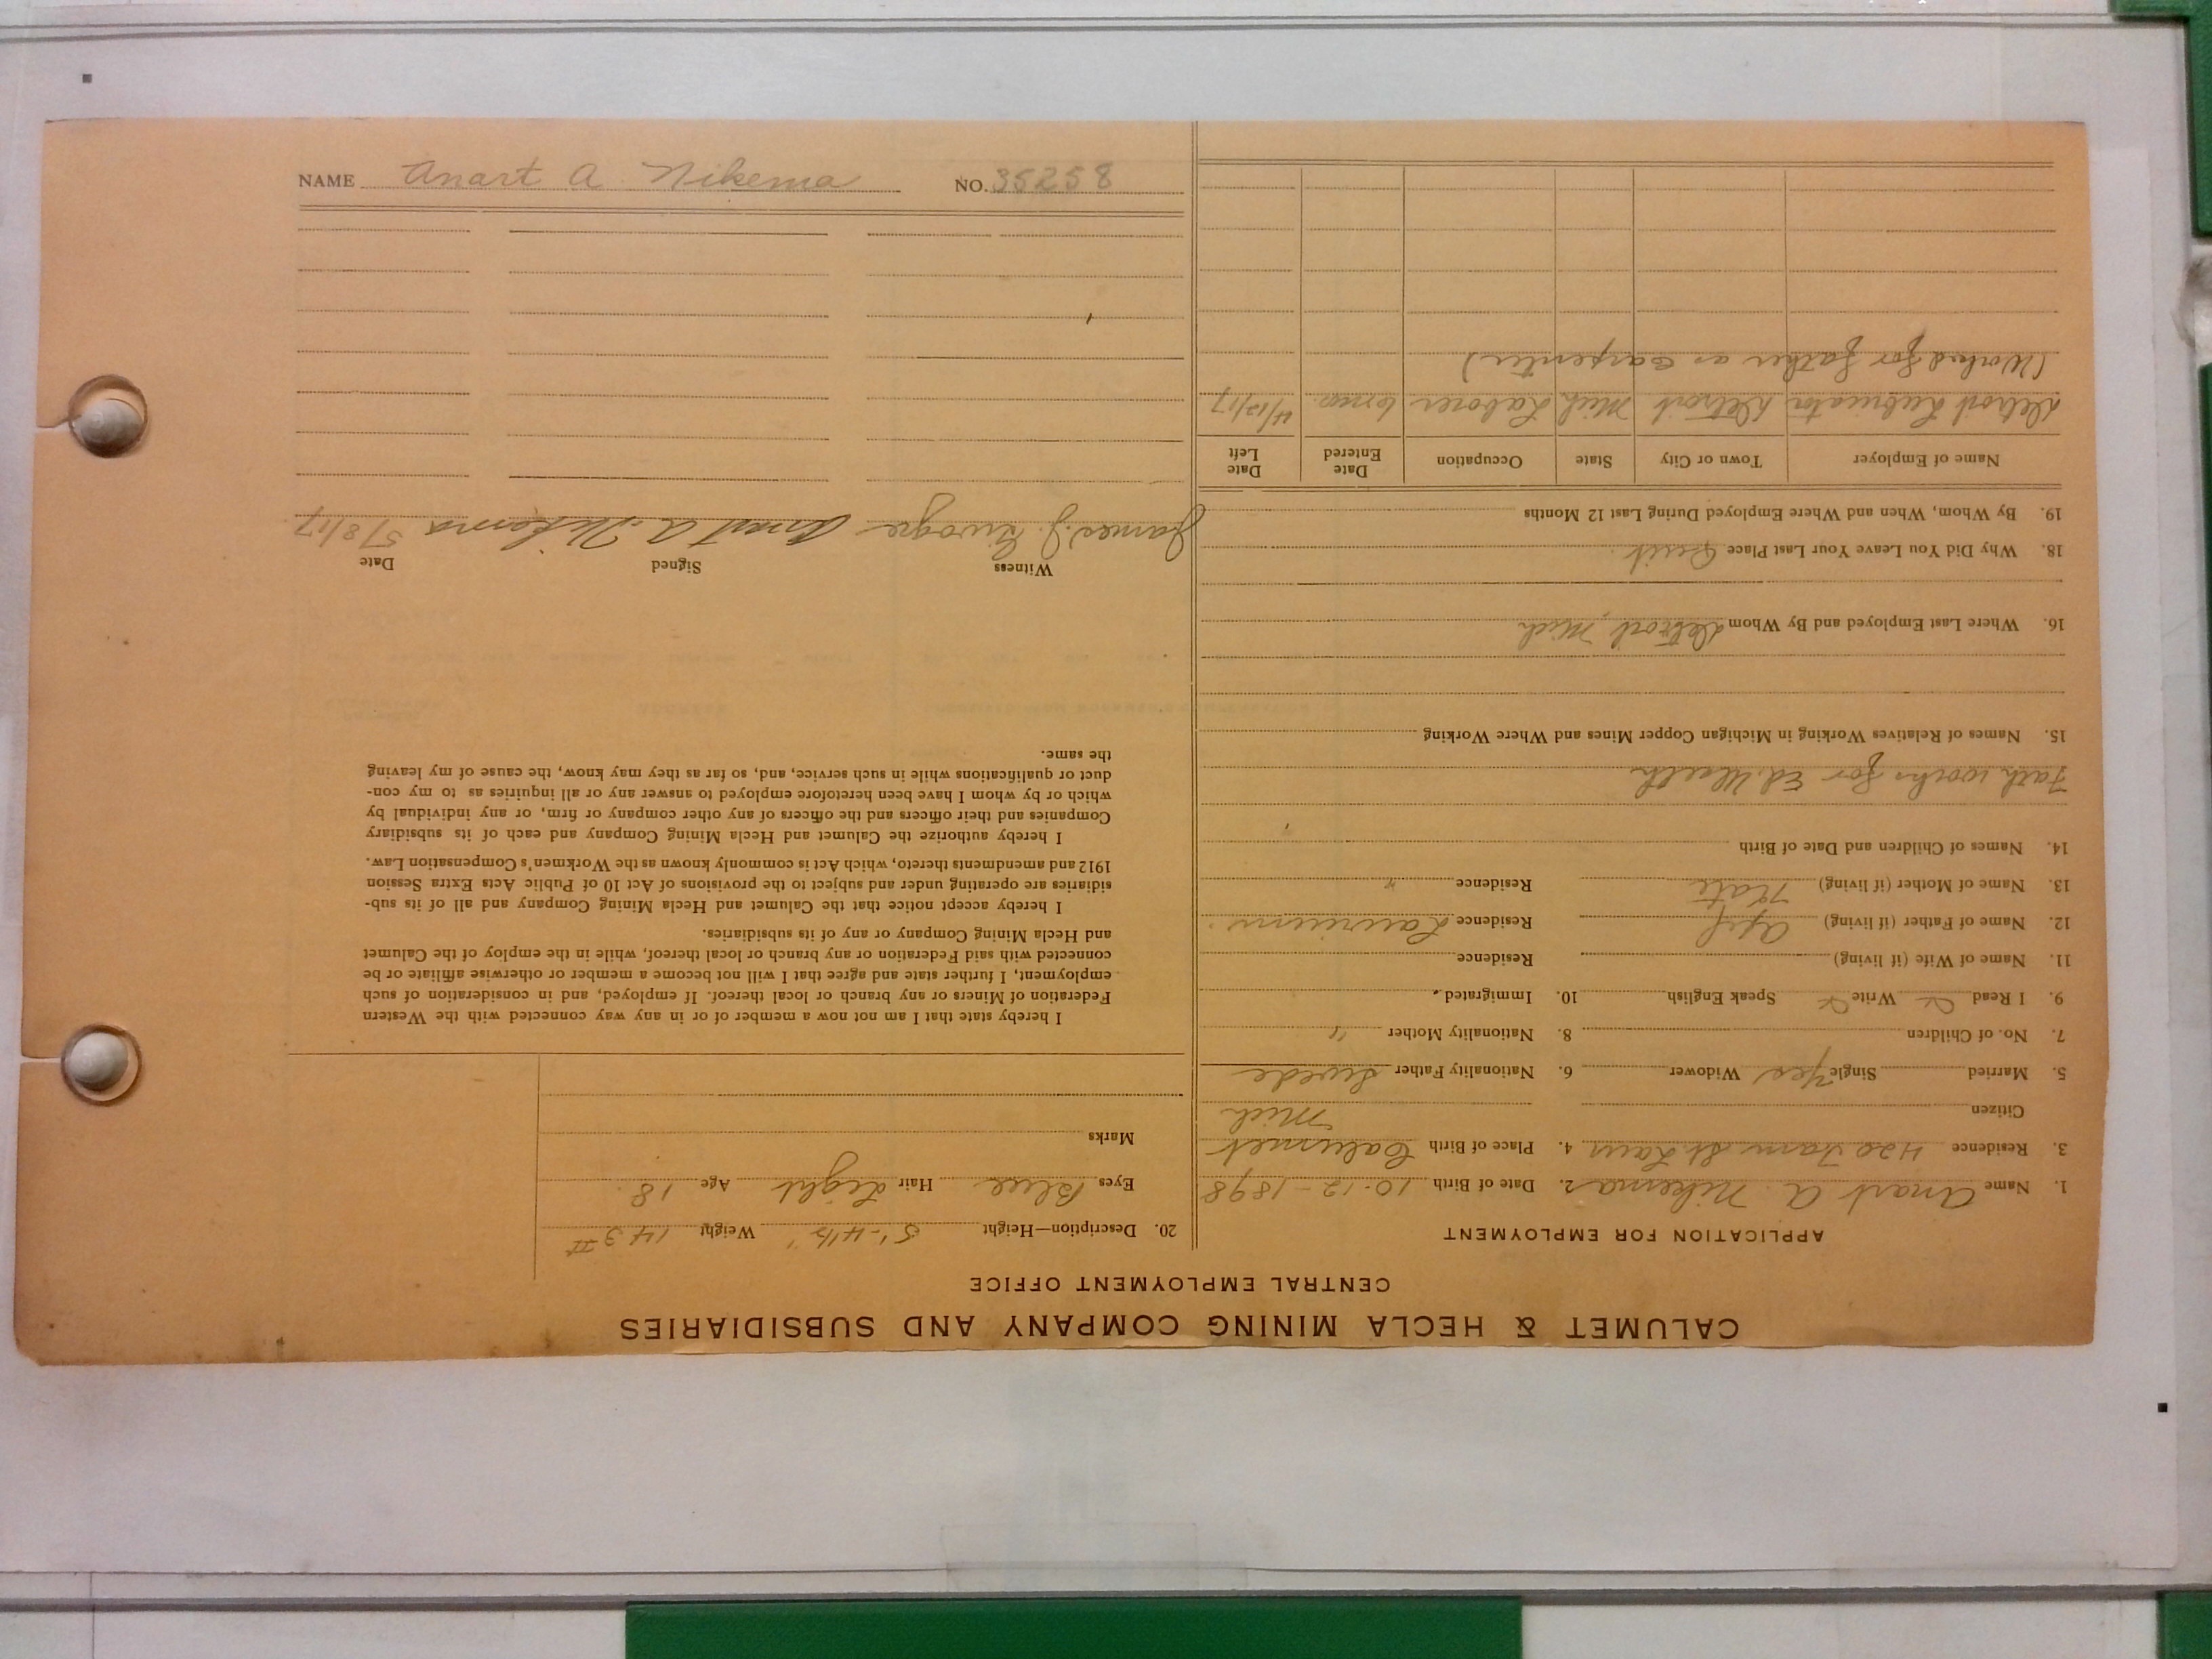 CALUMET & HECLA MINING COMPANY AND SUBSIDIARIES
CENTRAL EMPLOYMENT OFFICE
APPLICATION FOR EMPLOYMENT
1. Name Anart A. Nikema 2. Date of Birth 10-12-1898
3. Residence 420 Tam St Laur 4. Place of Birth Calumet
Citizen Mich
5. Married Single Yes Widower 6. Nationality Father Swede
7. No. of Children 8. Nationality Mother "
9. I Read Write Speak English 10. Immigrated
11. Name of Wife (if living) Residence
12. Name of Father (if living) Residence Laurium
13. Name of Mother (if living) Kate Residence "
14. Names of Children and Date of Birth
Fath works for Ed.
15. Names of Relatives Working in Michigan Copper Mines and Where Working
16. Where Last Employed and By Whom Detroit, Mich
18. Why Did You Leave Your Last Place Quit
19. By Whom, When and Where Employed During Last 12 Months
Name of Employer Town or City State Occupation Date Entered Date Left
Detroit Lubricator Detroit Mich Laborer 6 mos. 4/12/17
(Worked for father as carpenter)
20. Description—Height 5'-4½" Weight 143 #
Eyes Blue Hair Light Age 18
Marks
I hereby state that I am not now a member of or in any way connected with the Western
Federation of Miners or any branch or local thereof. If employed, and in consideration of such
employment, I further state and agree that I will not become a member or otherwise affiliate or be
connected with said Federation or any branch or local thereof, while in the employ of the Calumet
and Hecla Mining Company or any of its subsidiaries.
I hereby accept notice that the Calumet and Hecla Mining Company and all of its sub-
sidiaries are operating under and subject to the provisions of Act 10 of Public Acts Extra Session
1912 and amendments thereto, which Act is commonly known as the Workmen's Compensation Law.
I hereby authorize the Calumet and Hecla Mining Company and each of its subsidiary
Companies and their officers and the officers of any other company or firm, or any individual by
which or by whom I have been heretofore employed to answer any or all inquiries as to my con-
duct or qualifications while in such service, and, so far as they may know, the cause of my leaving
the same.
Witness Signed Date
James J. Anart A. Nikema 5/8/17
NAME Anart A Nikema NO. 35258